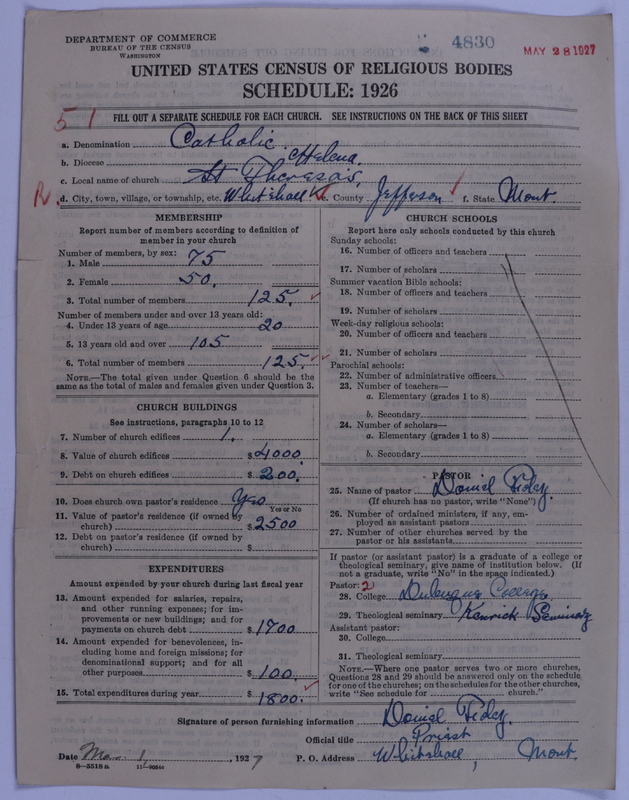 DEPARTMENT OF COMMERCE
BUREAU OF THE CENSUS
WASHINGTON
4830
MAY 28 1927
UNITED STATES CENSUS OF RELIGIOUS BODIES
SCHEDULE: 1926
51
FILL OUT A SEPARATE SCHEDULE FOR EACH CHURCH. SEE INSTRUCTIONS ON THE BACK OF THIS SHEET
a. Denomination Catholic
b. Diocese Helena
c. Local name of church St Theresa's
R d. City, town, village, or township, etc. Whitehall e. County Jefferson f. State Mont.
MEMBERSHIP
Report number of members according to definition of
member in your church
Number of members, by sex:
1. Male 75
2. Female 50.
3. Total number of members 125.
Number of members under and over 13 years old:
4. Under 13 years of age 20
5. 13 years old and over 105
6. Total number of members 125.
NOTE.—The total given under Question 6 should be the
same as the total of males and females given under Question 3.
CHURCH BUILDINGS
See instructions, paragraphs 10 to 12
7. Number of church edifices 1.
8. Value of church edifices $ 4000.
9. Debt on church edifices $ 200.
10. Does church own pastor's residence Yes
Yes or No
11. Value of pastor's residence (if owned by
church) $ 2500
12. Debt on pastor's residence (if owned by
church) $
EXPENDITURES
Amount expended by your church during last fiscal year
13. Amount expended for salaries, repairs,
and other running expenses; for im-
provements or new buildings; and for
payments on church debt $ 1700.
14. Amount expended for benevolences, in-
cluding home and foreign missions; for
denominational support; and for all
other purposes $ 100.
15. Total expenditures during year $ 1800.
CHURCH SCHOOLS
Report here only schools conducted by this church
Sunday schools:
16. Number of officers and teachers
17. Number of scholars
Summer vacation Bible schools:
18. Number of officers and teachers
19. Number of scholars
Week-day religious schools:
20. Number of officers and teachers
21. Number of scholars
Parochial schools:
22. Number of administrative officers
23. Number of teachers—
a. Elementary (grades 1 to 8)
b. Secondary
24. Number of scholars—
a. Elementary (grades 1 to 8)
b. Secondary
PASTOR
25. Name of pastor Daniel
(If church has no pastor, write "None")
26. Number of ordained ministers, if any, em-
ployed as assistant pastors
27. Number of other churches served by the
pastor or his assistants
If pastor (or assistant pastor) is a graduate of a college or
theological seminary, give name of institution below. (If
not a graduate, write "No" in the space indicated.)
Pastor: 2
28. College Dubuque College
29. Theological seminary Kenrick Seminary
Assistant pastor:
30. College
31. Theological seminary
NOTE.—Where one pastor serves two or more churches,
Questions 28 and 29 should be answered only on the schedule
for one of the churches; on the schedules for the other churches,
write "See schedule for church."
Signature of person furnishing information Daniel
Official title Priest
Date Mar 1, 1927 P. O. Address Whitehall, Mont.
8—5518 a